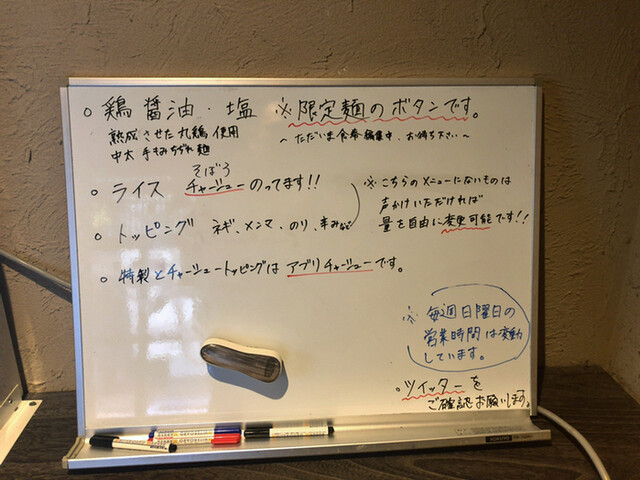 ○ 鶏醤油・塩 ※限定麺のボタンです。
熟成させた丸鶏使用
中太手もみちぢれ麺
～ただいま食券編集中、お待ち下さい～
そぼろ
○ ライス チャーシューのってます!!
○ トッピング ネギ、メンマ、のり、辛みなど
※こちらのメニューにないものは
声かけいただければ
量を自由に変更可能です!!
○ 特製とチャーシュートッピングはアブリチャーシューです。
※毎週日曜日の
営業時間は変動
しています。
○ツイッターを
ご確認お願いします。